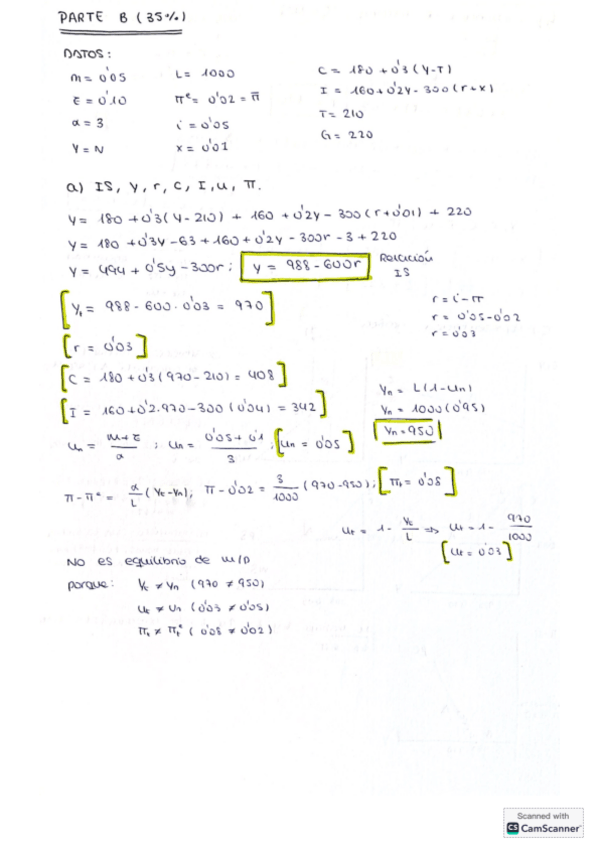 PARTE B (35%)
DATOS:
m = 0'05    L = 1000    C = 180 + 0'3 (Y-T)
z = 0'10    π^e = 0'02 = π̄    I = 160 + 0'2Y - 300 (r+x)
α = 3    i = 0'05    T = 210
Y = N    x = 0'01    G = 220
a) IS, Y, r, C, I, u, π.
Y = 180 + 0'3 (Y - 210) + 160 + 0'2Y - 300 (r + 0'01) + 220
Y = 180 + 0'3Y - 63 + 160 + 0'2Y - 300r - 3 + 220
Y = 494 + 0'5Y - 300r ; Y = 988 - 600r    Relación IS
[Y_t = 988 - 600 · 0'03 = 970]    r = i - π
[r = 0'03]    r = 0'05 - 0'02
r = 0'03
[C = 180 + 0'3 (970 - 210) = 408]
[I = 160 + 0'2 · 970 - 300 (0'04) = 342]    Yn = L (1 - Un)
Yn = 1000 (0'95)
Yn = 950
Un = (m+z)/α ; Un = (0'05 + 0'1)/3 ; [Un = 0'05]
π - π^e = α/L (Yt - Yn) ; π - 0'02 = 3/1000 (970 - 950) ; [π_t = 0'08]
Ut = 1 - Yt/L ⇒ Ut = 1 - 970/1000
[Ut = 0'03]
NO es equilibrio de m/p
porque: Yt ≠ Yn (970 ≠ 950)
Ut ≠ Un (0'03 ≠ 0'05)
π_t ≠ π_t^e (0'08 ≠ 0'02)
Scanned with
CS CamScanner